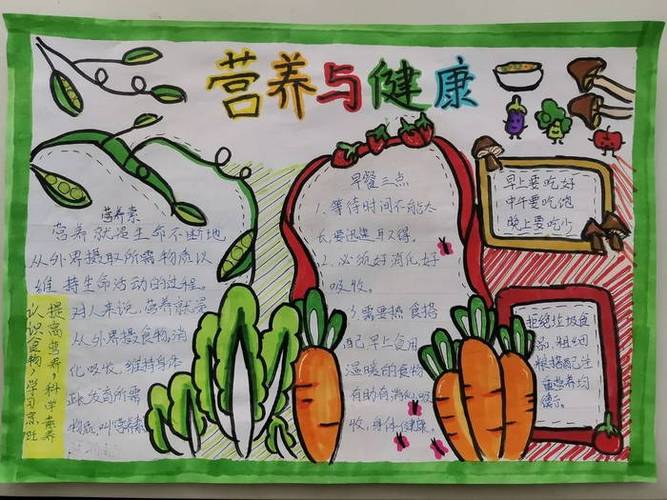 营养与健康
营养素
营养就是生命不断地
从外界摄取所需物质以
维持生命活动的过程。
对人来说,营养就是
从外界摄食物,消
化吸收,维持身体
生长发育所需
物质,叫营养素
提高营养,科学素养
认识食物,学习烹饪
早餐三点
1.等待时间不能太
长,要迅速取得。
2.必须好消化,好
吸收。
3.需要热食搭
配早上食用
温暖的食物
有助有消化,吸
收,身体健康。
早上要吃好
中午要吃饱
晚上要吃少
拒绝垃圾食
品,粗细
粮搭配注
重营养均